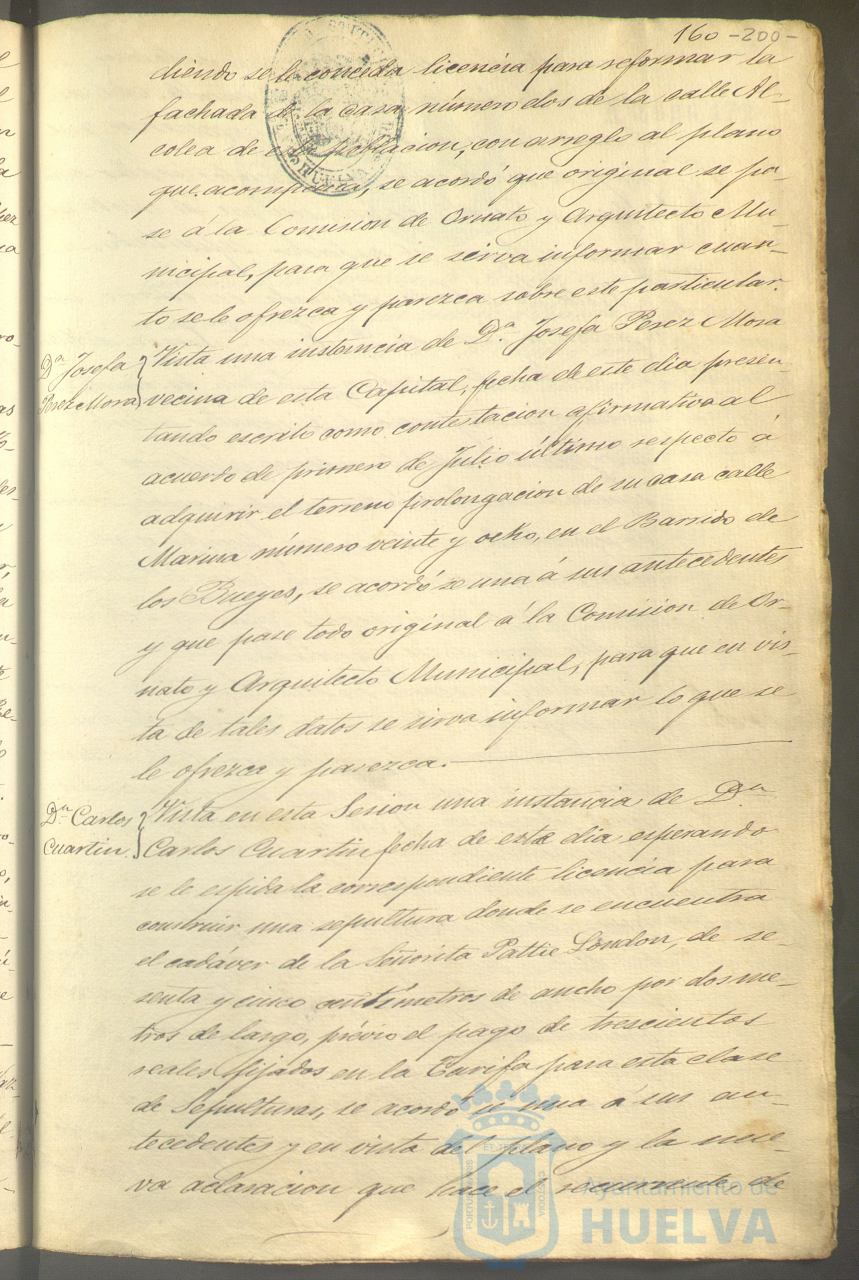 160 -200-
diendo se le conceda licencia para reformar la
fachada de la casa número dos de la calle Al-
colea de esta poblacion, con arreglo al plano
que acompaña, se acordó que original se pa-
se á la Comision de Ornato y Arquitecto Mu-
nicipal, para que se sirva informar cuan-
to se le ofrezca y parezca sobre este particular.
Dª Josefa
Perez Mora
Vista una instancia de Dª Josefa Perez Mora
vecina de esta Capital, fecha de este dia presen-
tando escrito como contestacion afirmativa al
acuerdo de primero de Julio último respecto á
adquirir el terreno prolongacion de su casa calle
Marina número veinte y ocho, en el Barrido de
los Bueyes, se acordó se una á sus antecedentes
y que pase todo original á la Comision de Or-
nato y Arquitecto Municipal, para que en vis-
ta de tales datos se sirva informar lo que se
le ofrezca y parezca.
Dn Carlos
Cuartin.
Vista en esta Sesion una instancia de Dn
Carlos Cuartin fecha de este dia esperando
se le espida la correspondiente licencia para
construir una sepultura donde se encuentra
el cadáver de la Señorita Pattie London, de se-
senta y cinco centímetros de ancho por dos me-
tros de largo, prévio el pago de trescientos
reales fijados en la Tarifa para esta clase
de Sepulturas, se acordó se una á sus an-
tecedentes y en vista del plano y la nue-
va aclaracion que hace el recurrente de
Ayuntamiento de
HUELVA